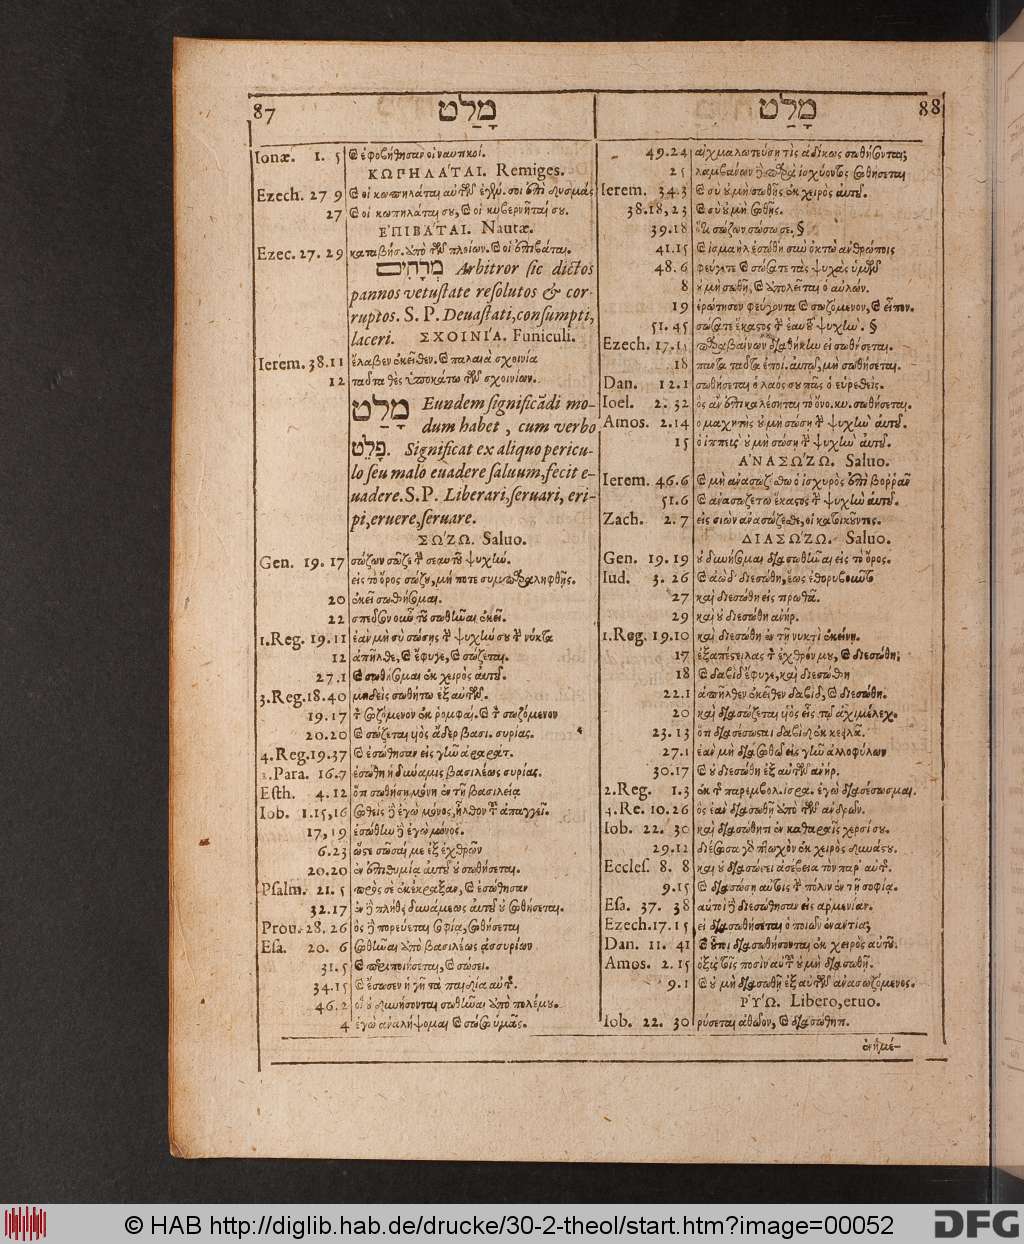 87 מָלַט
Ionæ. 1. 5 ϗ ἐφοβήθησαν οἱ ναυτικοί.
ΚΩΠΗΛΑΤΑΙ. Remiges.
Ezech. 27 9 ϗ οἱ κωπηλάται αὐτῶν
27 ϗ οἱ κωπηλάται σου, ϗ οἱ κυβερνῆται σου.
ΕΠΙΒΑΤΑΙ. Nautæ.
Ezec. 27. 29 ἀπὸ τῶν πλοίων. ϗ οἱ ἐπιβάται.
מְרָחִים Arbitror sic dictos
pannos vetustate resolutos & cor-
ruptos. S. P. Deuastati, consumpti,
laceri. ΣΧΟΙΝΙΑ. Funiculi.
Ierem. 38. 11 ἔλαβεν ἐκεῖθεν. ϗ παλαιὰ σχοινία
12 ταῦτα θὲς ὑποκάτω τῶν σχοινίων.
מָלַט Eundem significādi mo-
dum habet, cum verbo
פָּלֵט. Significat ex aliquo pericu-
lo seu malo euadere saluum, fecit e-
uadere. S. P. Liberari, seruari, eri-
pi, eruere, seruare.
ΣΩΖΩ. Saluo.
Gen. 19. 17 σώζων σῶζε τὴν σεαυτοῦ ψυχήν.
εἰς τὸ ὄρος σώζου, μήποτε συμπαραληφθῇς.
20 ἐκεῖ σωθήσομαι.
22 σπεῦσον οὖν τοῦ σωθῆναι ἐκεῖ.
1. Reg. 19. 11 ἐὰν μὴ σὺ σώσῃς τὴν ψυχήν σου τὴν νύκτα
12 ἀπῆλθε, ϗ ἔφυγε, ϗ σώζεται.
27. 1 ϗ σωθήσομαι ἐκ χειρὸς αὐτοῦ.
3. Reg. 18. 40 μηδεὶς σωθήτω ἐξ αὐτῶν.
19. 17 τὸν σωζόμενον ἐκ ῥομφαί. ϗ τὸν σωζόμενον
20. 20 ϗ σώζεται υἱὸς ἄδερ βασι. συρίας.
4. Reg. 19. 37 ϗ ἐσώθησαν εἰς γῆν ἀραράτ.
1. Para. 16. 7 ἐσώθη ἡ δύναμις βασιλέως συρίας.
Esth. 4. 12 ὅτι σωθήσῃ μόνη ἐν τῇ βασιλείᾳ
Iob. 1. 15, 16 σωθεὶς δὲ ἐγὼ μόνος, ἦλθον τοῦ ἀπαγγεῖ.
17, 19 ἐσώθην δὲ ἐγὼ μόνος.
6. 23 ὥστε σῶσαί με ἐξ ἐχθρῶν
20. 20 ἐν ἐπιθυμίᾳ αὐτοῦ οὐ σωθήσεται.
Psalm. 21. 5 πρὸς σὲ ἐκέκραξαν, ϗ ἐσώθησαν
32. 17 ἐν δὲ πλήθει δυνάμεως αὐτοῦ οὐ σωθήσεται.
Prou. 28. 26 ὃς δὲ πορεύεται σοφίᾳ, σωθήσεται
Esa. 20. 6 σωθῆναι ἀπὸ βασιλέως ἀσσυρίων
31. 5 ϗ περιποιήσεται, ϗ σώσει.
34. 15 ϗ ἔσωσεν ἡ γῆ τὰ παιδία αὐτῆς.
46. 2 οἳ οὐ δυνήσονται σωθῆναι ἀπὸ πολέμου.
4 ἐγὼ ἀναλήψομαι ϗ σώσω ὑμᾶς.
88 מָלַט
49. 24 αἰχμαλωτεύσῃ τὶς ἀδίκως σωθήσεται;
25 λαμβάνων δὲ παρὰ ἰσχύοντος σωθήσεται
Ierem. 34. 3 ϗ σὺ οὐ μὴ σωθῇς ἐκ χειρὸς αὐτοῦ.
38. 18, 23 ϗ σὺ οὐ μὴ σωθῇς.
39. 18 ὅτι σώζων σώσω σε. §
41. 15 ϗ ἰσμαὴλ ἐσώθη σὺν ὀκτὼ ἀνθρώποις
48. 6 φεύγετε ϗ σώσατε τὰς ψυχὰς ὑμῶν
8 οὐ μὴ σωθῇ, ϗ ἀπολεῖται ὁ αὐλών.
19 ἐρώτησον φεύγοντα ϗ σωζόμενον, ϗ εἶπον.
51. 45 σώσατε ἕκαστος τὴν ἑαυτοῦ ψυχήν. §
Ezech. 17. 15 παραβαίνων διαθήκην εἰ σωθήσεται.
18 πάντα ταῦτα ἐποί. αὐτῷ, μὴ σωθήσεται.
Dan. 12. 1 σωθήσεται ὁ λαός σου πᾶς ὁ εὑρεθείς.
Ioel. 2. 32 ὃς ἂν ἐπικαλέσηται τὸ ὄνο. κυ. σωθήσεται.
Amos. 2. 14 ὁ μαχητὴς οὐ μὴ σώσῃ τὴν ψυχὴν αὐτοῦ.
15 ὁ ἱππεὺς οὐ μὴ σώσῃ τὴν ψυχὴν αὐτοῦ.
ΑΝΑΣΩΖΩ. Saluo.
Ierem. 46. 6 ϗ μὴ ἀνασωζέσθω ὁ ἰσχυρὸς ἐπὶ βορρᾶν
51. 6 ϗ ἀνασώζετω ἕκαστος τὴν ψυχὴν αὐτοῦ.
Zach. 2. 7 εἰς σιὼν ἀνασώζεσθε, οἱ κατοικοῦντες.
ΔΙΑΣΩΖΩ. Saluo.
Gen. 19. 19 οὐ δυνήσομαι διασωθῆναι εἰς τὸ ὄρος.
Iud. 3. 26 ϗ ἀὼδ διεσώθη, ἕως ἐθορυβοῦντο
27 καὶ διεσώθη εἰς
29 καὶ οὐ διεσώθη ἀνήρ.
1. Reg. 19. 10 καὶ διεσώθη ἐν τῇ νυκτὶ ἐκείνῃ.
17 ἐξαπέστειλας τὸν ἐχθρόν μου, ϗ διεσώθη;
18 ϗ δαβὶδ ἔφυγε, καὶ διεσώθη
22. 1 ἀπῆλθεν ἐκεῖθεν δαβίδ, ϗ διεσώθη.
20 καὶ διασώζεται υἱὸς εἷς τῷ ἀχιμέλεχ.
23. 13 ὅτι διασέσωσται δαβὶδ ἐκ κεϊλά.
27. 1 ἐὰν μὴ διασωθῶ εἰς γῆν ἀλλοφύλων
30. 17 ϗ οὐ διεσώθη ἐξ αὐτῶν ἀνήρ.
2. Reg. 1. 3 ἐκ τῆς παρεμβολ. ἰσρα. ἐγὼ διασέσωσμαι.
4. Re. 10. 26 ὃς ἐὰν διασωθῇ ἀπὸ τῶν ἀνδρῶν.
Iob. 22. 30 καὶ διασώθητι ἐν καθαραῖς χερσί σου.
29. 12 διέσωσα γὰρ πτωχὸν ἐκ χειρὸς δυνάστου.
Eccles. 8. 8 καὶ οὐ διασώσει ἀσέβεια τὸν παρ' αὐτῆς.
9. 15 ϗ διασώσῃ αὐτὸς τὴν πόλιν ἐν τῇ σοφίᾳ.
Esa. 37. 38 αὐτοὶ δὲ διεσώθησαν εἰς ἀρμενίαν.
Ezech. 17. 15 εἰ διασωθήσεται ὁ ποιῶν ἐναντία;
Dan. 11. 41 ϗ οὗτοι διασωθήσονται ἐκ χειρὸς αὐτοῦ.
Amos. 2. 15 ὀξὺς τοῖς ποσὶν αὐτοῦ οὐ μὴ διασωθῇ.
9. 1 ϗ οὐ μὴ διασωθῇ ἐξ αὐτῶν ἀνασωζόμενος.
ΡΥΩ. Libero, eruo.
Iob. 22. 30 ῥύσεται ἀθῶον, ϗ διασώθητι.
© HAB http://diglib.hab.de/drucke/30-2-theol/start.htm?image=00052
DFG